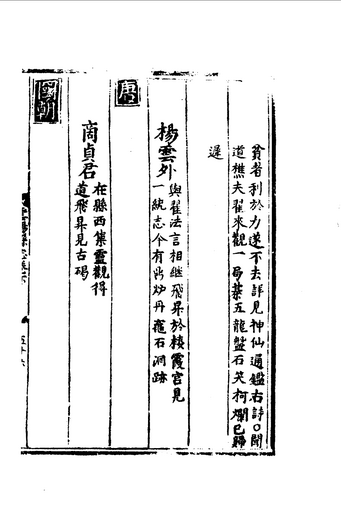 貧者利於力遂不去詳見神仙通鑑古詩〇聞
道樵夫深來觀一局棊五龍盤石笑柯爛已歸
遲
楊雲外
與翟法言相繼飛昇於棲霞宮見
一統志今有丹炉丹竈石洞跡
唐
商貞君
在縣西集靈觀得
道飛昇見古碣
國朝